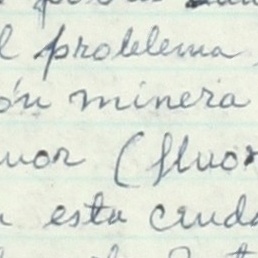 l problema
ón minera
uor (fluor
esta ciuda